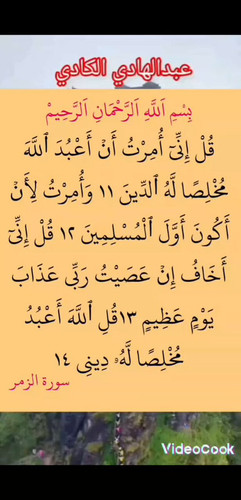 عبدالهادي الكادي
بِسْمِ اَللَّهِ اَلرَّحْمَانِ اَلرَّحِيمْ
قُلْ إِنِّيٓ أُمِرْتُ أَنْ أَعْبُدَ ٱللَّهَ
مُخْلِصًا لَّهُ ٱلدِّينَ ١١ وَأُمِرْتُ لِأَنْ
أَكُونَ أَوَّلَ ٱلْمُسْلِمِينَ ١٢ قُلْ إِنِّيٓ
أَخَافُ إِنْ عَصَيْتُ رَبِّي عَذَابَ
يَوْمٍ عَظِيمٍ ١٣قُلِ ٱللَّهَ أَعْبُدُ
مُخْلِصًا لَّهُۥ دِينِي ١٤
سورة الزمر
VideoCook